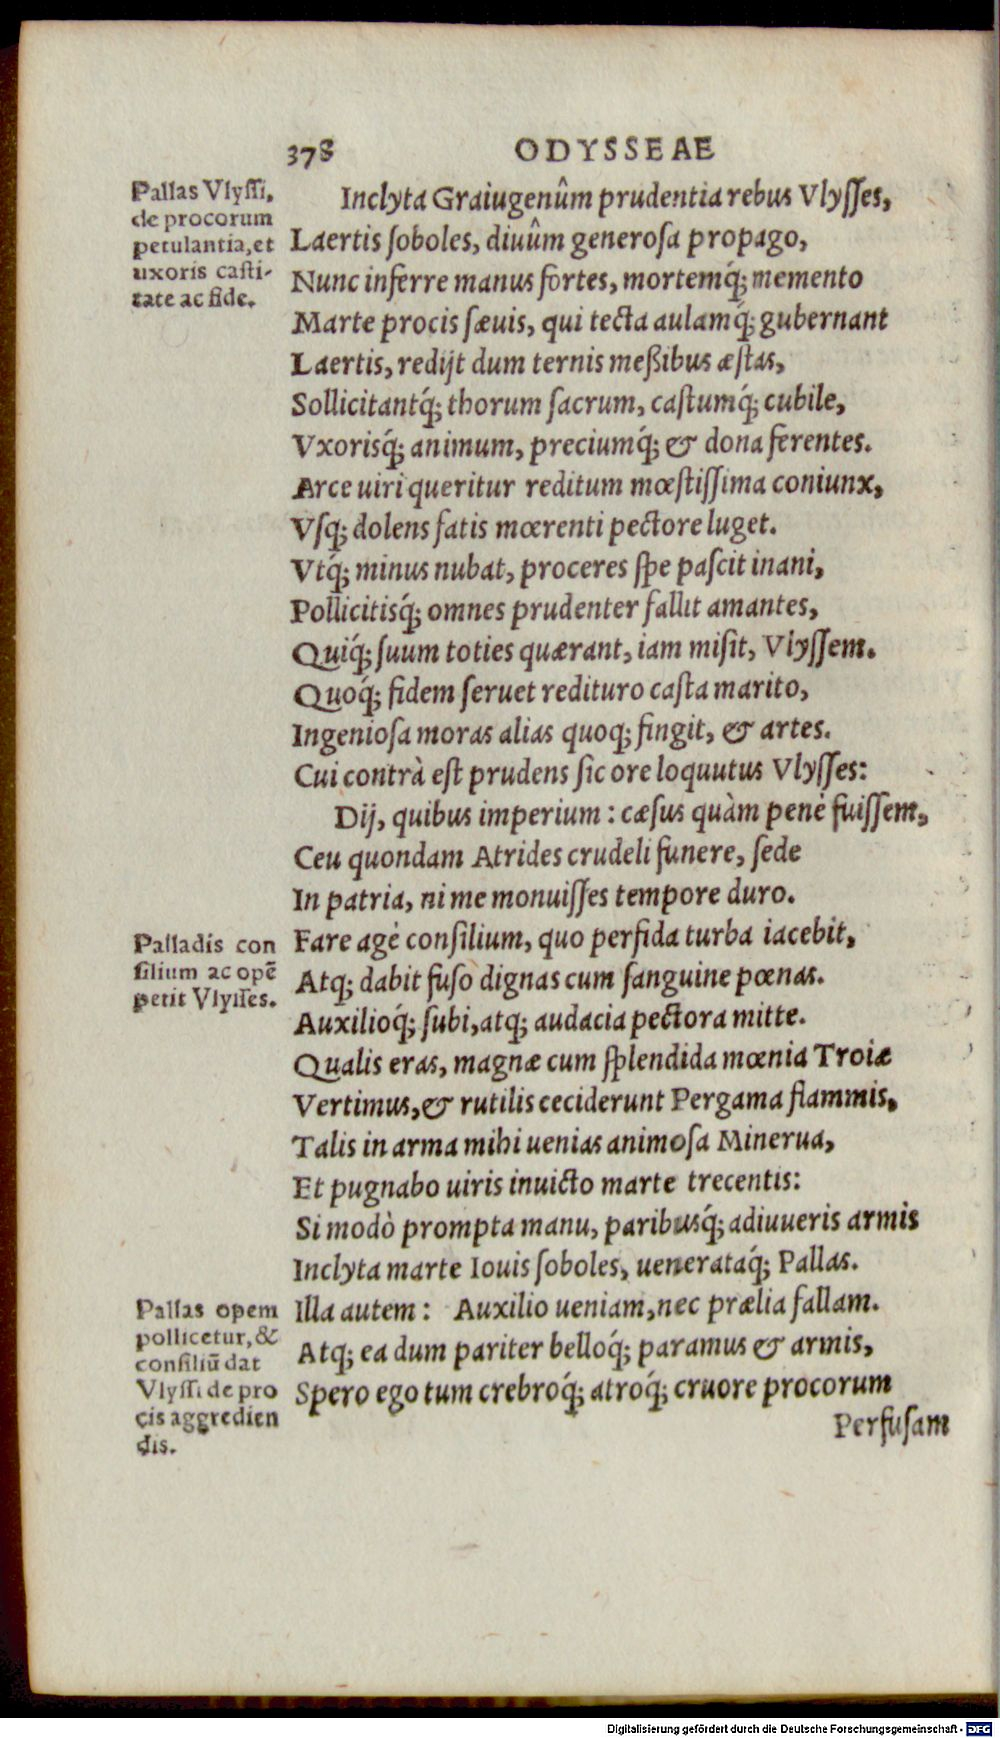 378 ODYSSEAE
Pallas Vlyssi,
de procorum
petulantia, et
uxoris casti-
tate ac fide.
Inclyta Graiugenûm prudentia rebus Vlysses,
Laertis soboles, diuûm generosa propago,
Nunc inferre manus fortes, mortemq́; memento
Marte procis sæuis, qui tecta aulamq́; gubernant
Laertis, redijt dum ternis meßibus æstas,
Sollicitantq́; thorum sacrum, castumq́; cubile,
Vxorisq́; animum, preciumq́; & dona ferentes.
Arce uiri queritur reditum mœstissima coniunx,
Vsq; dolens fatis mœrenti pectore luget.
Vtq́; minus nubat, proceres spe pascit inani,
Pollicitisq́; omnes prudenter fallit amantes,
Quiq́; suum toties quærant, iam misit, Vlyssem.
Quoq́; fidem seruet redituro casta marito,
Ingeniosa moras alias quoq; fingit, & artes.
Cui contrà est prudens sic ore loquutus Vlysses:
Dij, quibus imperium: cæsus quàm penè fuissem,
Ceu quondam Atrides crudeli funere, sede
In patria, ni me monuisses tempore duro.
Palladis con
silium ac opē
petit Vlysses.
Fare agè consilium, quo perfida turba iacebit,
Atq; dabit fuso dignas cum sanguine pœnas.
Auxilioq́; subi, atq; audacia pectora mitte.
Qualis eras, magnæ cum splendida mœnia Troiæ
Vertimus, & rutilis ceciderunt Pergama flammis,
Talis in arma mihi uenias animosa Minerua,
Et pugnabo uiris inuicto marte trecentis:
Si modò prompta manu, paribusq́; adiuueris armis
Inclyta marte Iouis soboles, uenerataq́; Pallas.
Pallas opem
pollicetur, &
consiliū dat
Vlyssi de pro
cis aggredien
dis.
Illa autem: Auxilio ueniam, nec prælia fallam.
Atq; ea dum pariter belloq́; paramus & armis,
Spero ego tum crebroq́; atroq́; cruore procorum
Perfusam
Digitalisierung gefördert durch die Deutsche Forschungsgemeinschaft - DFG